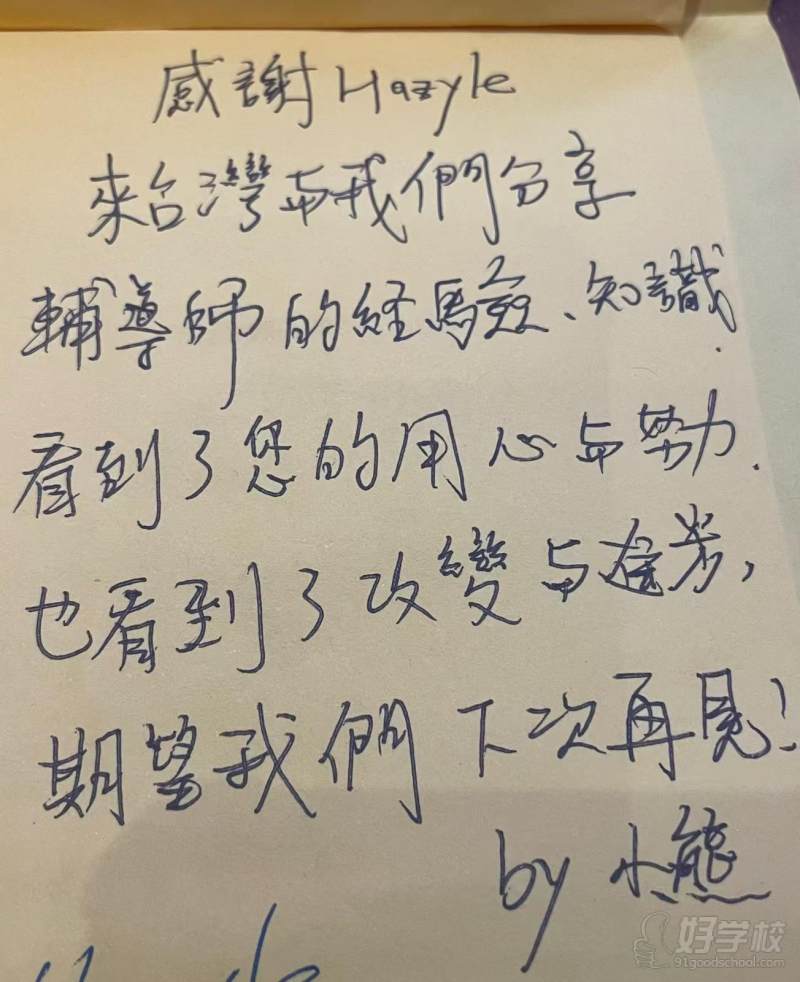 感謝Hazyle
來台灣与我們分享
輔導師的経驗、知識.
看到了您的用心与努力.
也看到了改變与差异,
期望我們下次再見!
by 小熊
好学校
91goodschool.com